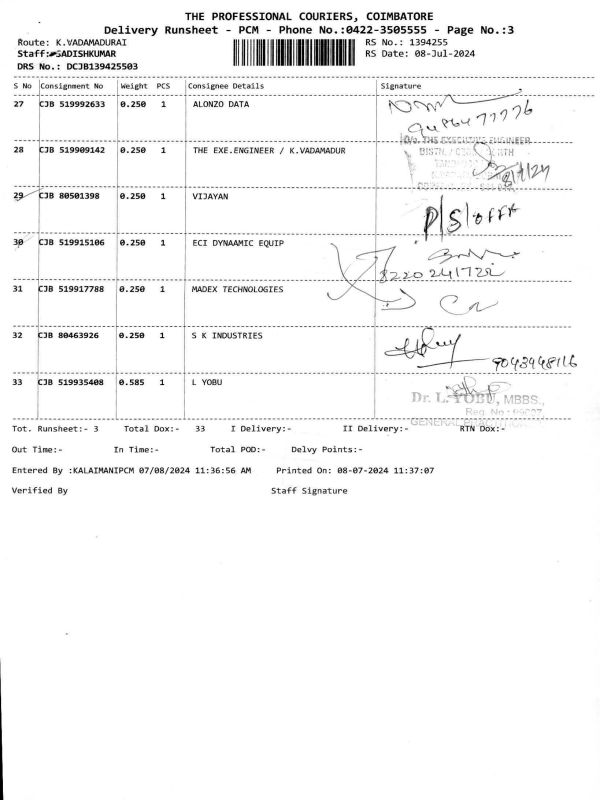 THE PROFESSIONAL COURIERS, COIMBATORE
Delivery Runsheet - PCM - Phone No.:0422-3505555 - Page No.:3
Route: K.VADAMADURAI
RS No.: 1394255
Staff: SADISHKUMAR
RS Date: 08-Jul-2024
DRS No.: DCJB139425503
S No Consignment No Weight PCS Consignee Details Signature
27 CJB 519992633 0.250 1 ALONZO DATA
9486477776
28 CJB 519909142 0.250 1 THE EXE.ENGINEER / K.VADAMADUR
O/o. THE EXECUTIVE ENGINEER
8/7/24
29 CJB 80501398 0.250 1 VIJAYAN
P/S/OFFA
30 CJB 519915106 0.250 1 ECI DYNAAMIC EQUIP
31 CJB 519917788 0.250 1 MADEX TECHNOLOGIES
32 CJB 80463926 0.250 1 S K INDUSTRIES
33 CJB 519935408 0.585 1 L YOBU
Dr. L. YOBU, MBBS.,
Reg. No.
Tot. Runsheet:- 3 Total Dox:- 33 I Delivery:- II Delivery:- RTN Dox:-
Out Time:- In Time:- Total POD:- Delvy Points:-
Entered By :KALAIMANIPCM 07/08/2024 11:36:56 AM Printed On: 08-07-2024 11:37:07
Verified By Staff Signature